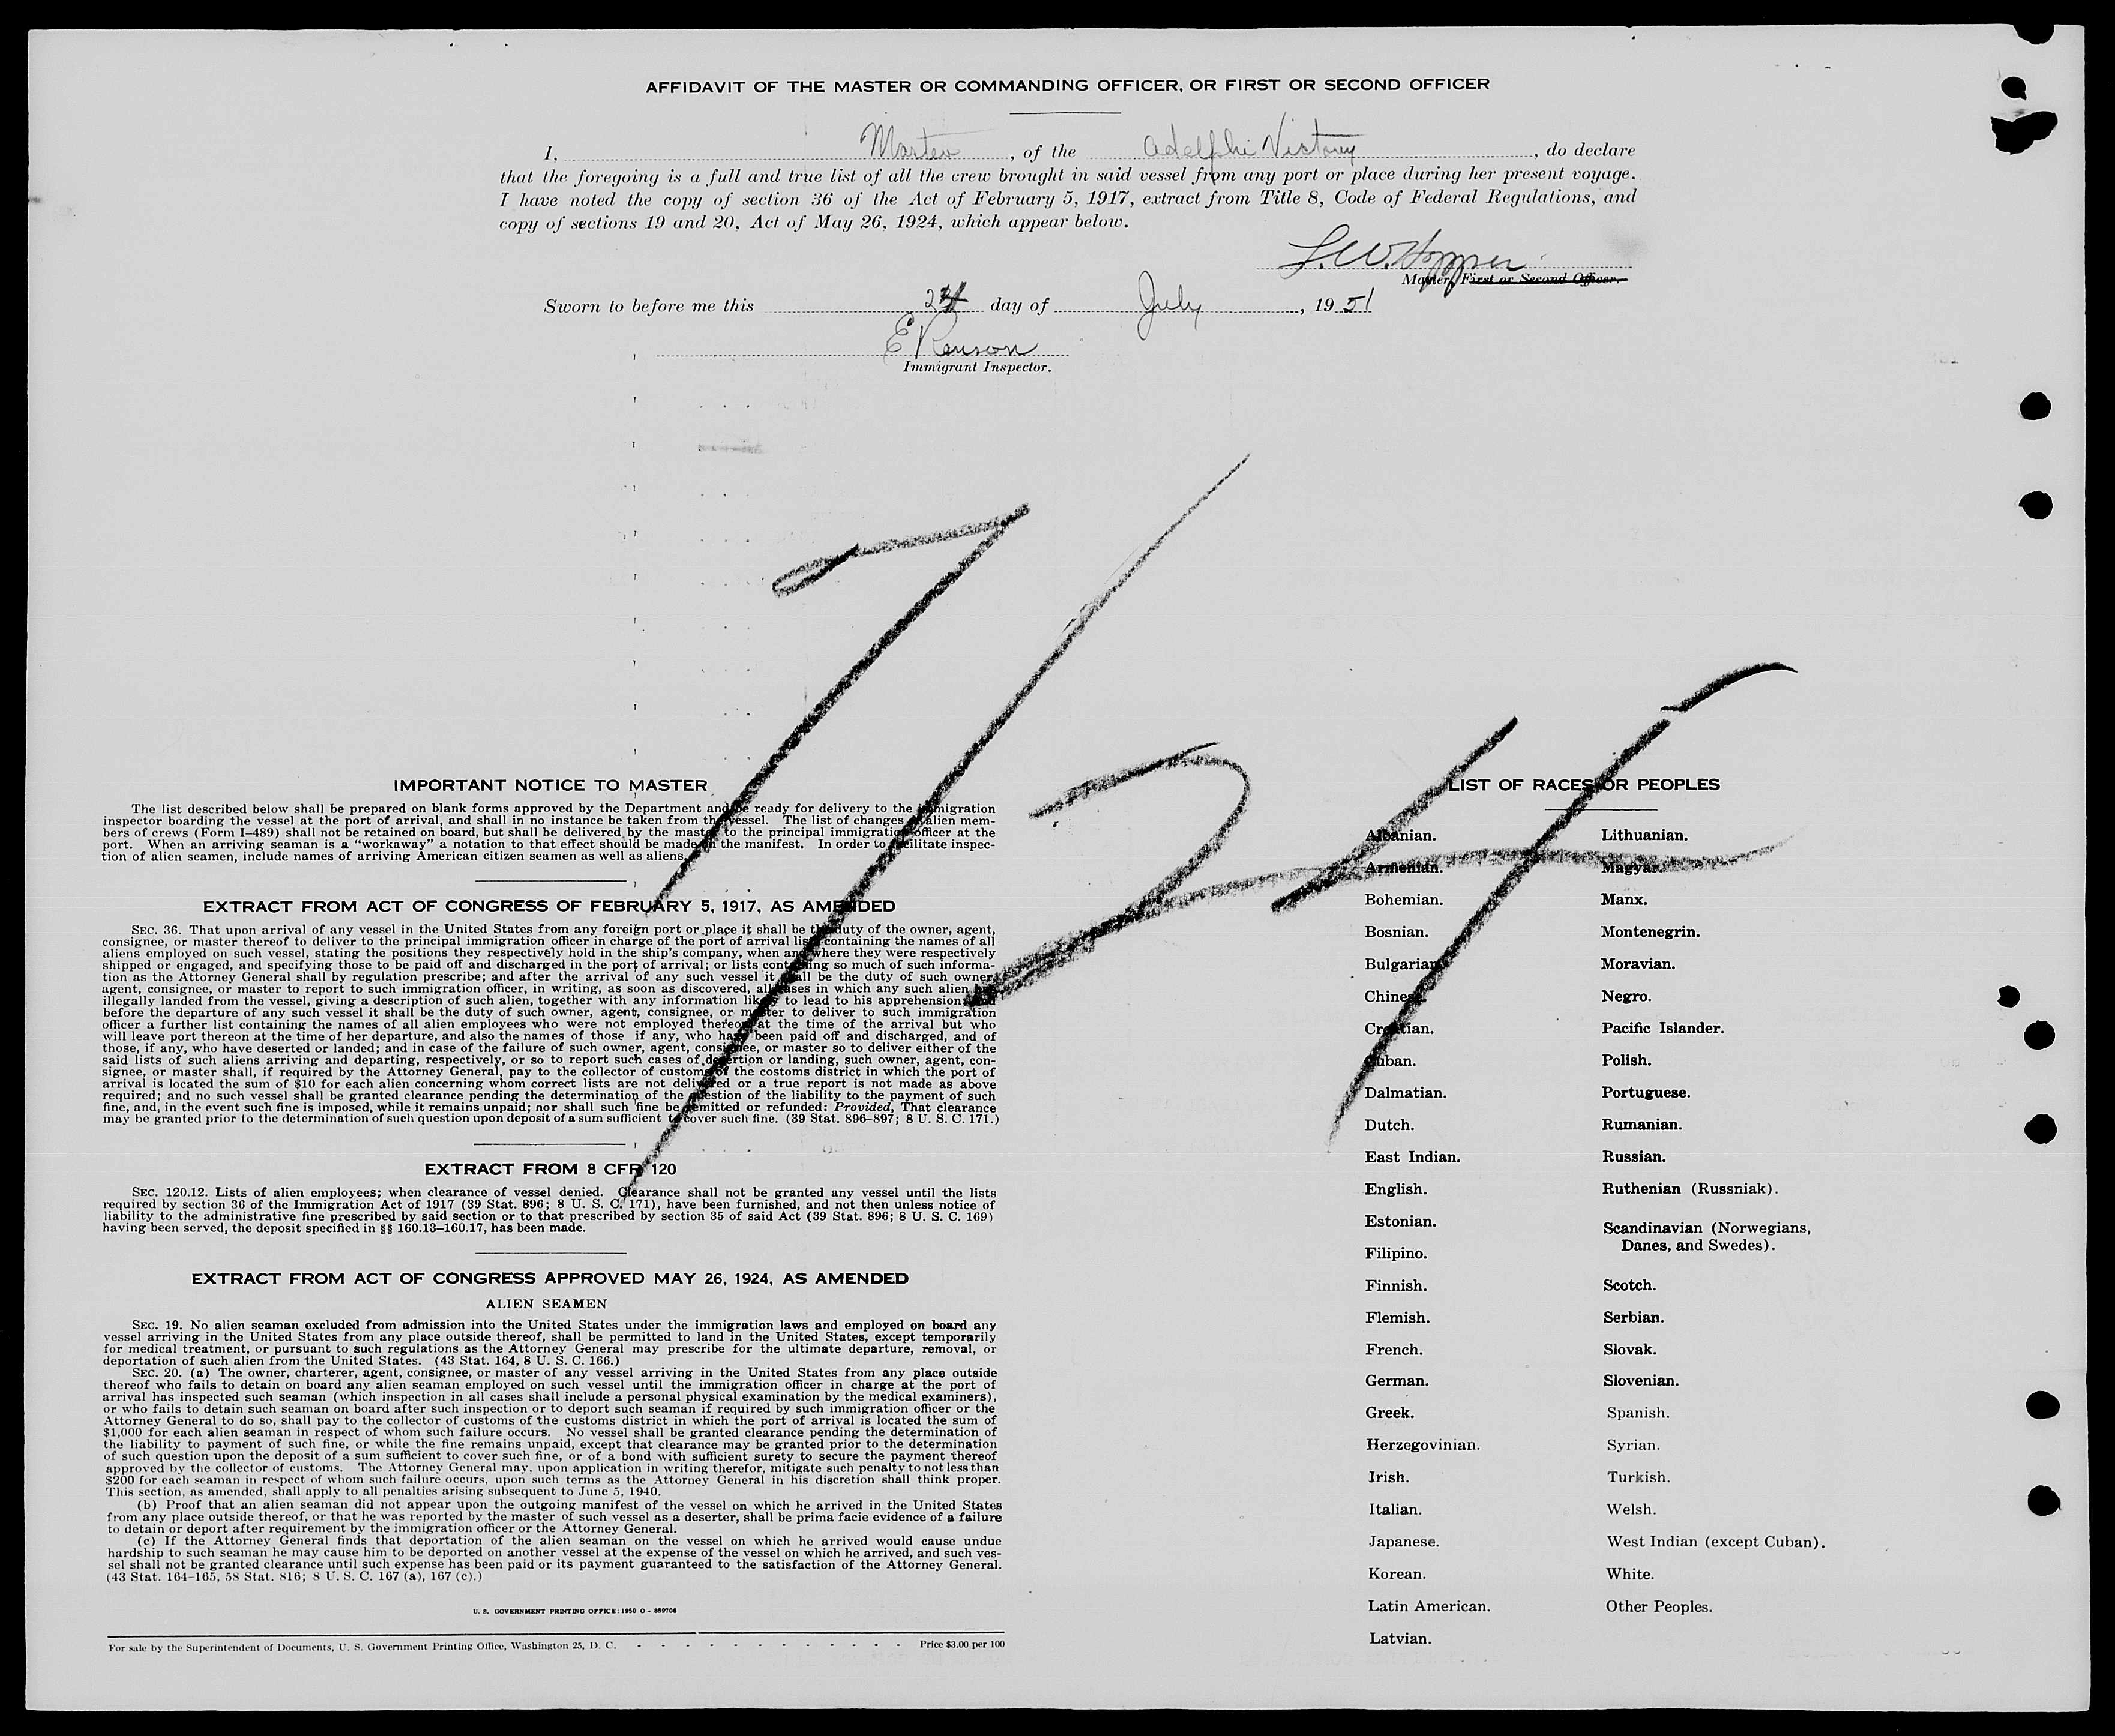 AFFIDAVIT OF THE MASTER OR COMMANDING OFFICER, OR FIRST OR SECOND OFFICER
I, Master, of the Adelphi Victory, do declare
that the foregoing is a full and true list of all the crew brought in said vessel from any port or place during her present voyage.
I have noted the copy of section 36 of the Act of February 5, 1917, extract from Title 8, Code of Federal Regulations, and
copy of sections 19 and 20, Act of May 26, 1924, which appear below.
Master, First or Second Officer.
Sworn to before me this 24 day of July, 1951
Immigrant Inspector.
7/24
IMPORTANT NOTICE TO MASTER
The list described below shall be prepared on blank forms approved by the Department and be ready for delivery to the immigration
inspector boarding the vessel at the port of arrival, and shall in no instance be taken from the vessel. The list of changes of alien mem-
bers of crews (Form I–489) shall not be retained on board, but shall be delivered by the master to the principal immigration officer at the
port. When an arriving seaman is a “workaway” a notation to that effect should be made on the manifest. In order to facilitate inspec-
tion of alien seamen, include names of arriving American citizen seamen as well as aliens.
EXTRACT FROM ACT OF CONGRESS OF FEBRUARY 5, 1917, AS AMENDED
SEC. 36. That upon arrival of any vessel in the United States from any foreign port or place it shall be the duty of the owner, agent,
consignee, or master thereof to deliver to the principal immigration officer in charge of the port of arrival lists containing the names of all
aliens employed on such vessel, stating the positions they respectively hold in the ship's company, when and where they were respectively
shipped or engaged, and specifying those to be paid off and discharged in the port of arrival; or lists containing so much of such informa-
tion as the Attorney General shall by regulation prescribe; and after the arrival of any such vessel it shall be the duty of such owner,
agent, consignee, or master to report to such immigration officer, in writing, as soon as discovered, all cases in which any such alien has
illegally landed from the vessel, giving a description of such alien, together with any information likely to lead to his apprehension; and
before the departure of any such vessel it shall be the duty of such owner, agent, consignee, or master to deliver to such immigration
officer a further list containing the names of all alien employees who were not employed thereon at the time of the arrival but who
will leave port thereon at the time of her departure, and also the names of those if any, who have been paid off and discharged, and of
those, if any, who have deserted or landed; and in case of the failure of such owner, agent, consignee, or master so to deliver either of the
said lists of such aliens arriving and departing, respectively, or so to report such cases of desertion or landing, such owner, agent, con-
signee, or master shall, if required by the Attorney General, pay to the collector of customs of the costoms district in which the port of
arrival is located the sum of $10 for each alien concerning whom correct lists are not delivered or a true report is not made as above
required; and no such vessel shall be granted clearance pending the determination of the question of the liability to the payment of such
fine, and, in the event such fine is imposed, while it remains unpaid; nor shall such fine be remitted or refunded: Provided, That clearance
may be granted prior to the determination of such question upon deposit of a sum sufficient to cover such fine. (39 Stat. 896–897; 8 U. S. C. 171.)
EXTRACT FROM 8 CFR 120
SEC. 120.12. Lists of alien employees; when clearance of vessel denied. Clearance shall not be granted any vessel until the lists
required by section 36 of the Immigration Act of 1917 (39 Stat. 896; 8 U. S. C. 171), have been furnished, and not then unless notice of
liability to the administrative fine prescribed by said section or to that prescribed by section 35 of said Act (39 Stat. 896; 8 U. S. C. 169)
having been served, the deposit specified in §§ 160.13–160.17, has been made.
EXTRACT FROM ACT OF CONGRESS APPROVED MAY 26, 1924, AS AMENDED
ALIEN SEAMEN
SEC. 19. No alien seaman excluded from admission into the United States under the immigration laws and employed on board any
vessel arriving in the United States from any place outside thereof, shall be permitted to land in the United States, except temporarily
for medical treatment, or pursuant to such regulations as the Attorney General may prescribe for the ultimate departure, removal, or
deportation of such alien from the United States. (43 Stat. 164, 8 U. S. C. 166.)
SEC. 20. (a) The owner, charterer, agent, consignee, or master of any vessel arriving in the United States from any place outside
thereof who fails to detain on board any alien seaman employed on such vessel until the immigration officer in charge at the port of
arrival has inspected such seaman (which inspection in all cases shall include a personal physical examination by the medical examiners),
or who fails to detain such seaman on board after such inspection or to deport such seaman if required by such immigration officer or the
Attorney General to do so, shall pay to the collector of customs of the customs district in which the port of arrival is located the sum of
$1,000 for each alien seaman in respect of whom such failure occurs. No vessel shall be granted clearance pending the determination of
the liability to payment of such fine, or while the fine remains unpaid, except that clearance may be granted prior to the determination
of such question upon the deposit of a sum sufficient to cover such fine, or of a bond with sufficient surety to secure the payment thereof
approved by the collector of customs. The Attorney General may, upon application in writing therefor, mitigate such penalty to not less than
$200 for each seaman in respect of whom such failure occurs, upon such terms as the Attorney General in his discretion shall think proper.
This section, as amended, shall apply to all penalties arising subsequent to June 5, 1940.
(b) Proof that an alien seaman did not appear upon the outgoing manifest of the vessel on which he arrived in the United States
from any place outside thereof, or that he was reported by the master of such vessel as a deserter, shall be prima facie evidence of a failure
to detain or deport after requirement by the immigration officer or the Attorney General.
(c) If the Attorney General finds that deportation of the alien seaman on the vessel on which he arrived would cause undue
hardship to such seaman he may cause him to be deported on another vessel at the expense of the vessel on which he arrived, and such ves-
sel shall not be granted clearance until such expense has been paid or its payment guaranteed to the satisfaction of the Attorney General.
(43 Stat. 164–165, 58 Stat. 816; 8 U. S. C. 167 (a), 167 (c).)
U. S. GOVERNMENT PRINTING OFFICE: 1950 O - 869708
For sale by the Superintendent of Documents, U. S. Government Printing Office, Washington 25, D. C. - - - - - - - - - - - - Price $3.00 per 100
LIST OF RACES OR PEOPLES
Albanian.
Armenian.
Bohemian.
Bosnian.
Bulgarian.
Chinese.
Croatian.
Cuban.
Dalmatian.
Dutch.
East Indian.
English.
Estonian.
Filipino.
Finnish.
Flemish.
French.
German.
Greek.
Herzegovinian.
Irish.
Italian.
Japanese.
Korean.
Latin American.
Latvian.
Lithuanian.
Magyar.
Manx.
Montenegrin.
Moravian.
Negro.
Pacific Islander.
Polish.
Portuguese.
Rumanian.
Russian.
Ruthenian (Russniak).
Scandinavian (Norwegians,
Danes, and Swedes).
Scotch.
Serbian.
Slovak.
Slovenian.
Spanish.
Syrian.
Turkish.
Welsh.
West Indian (except Cuban).
White.
Other Peoples.